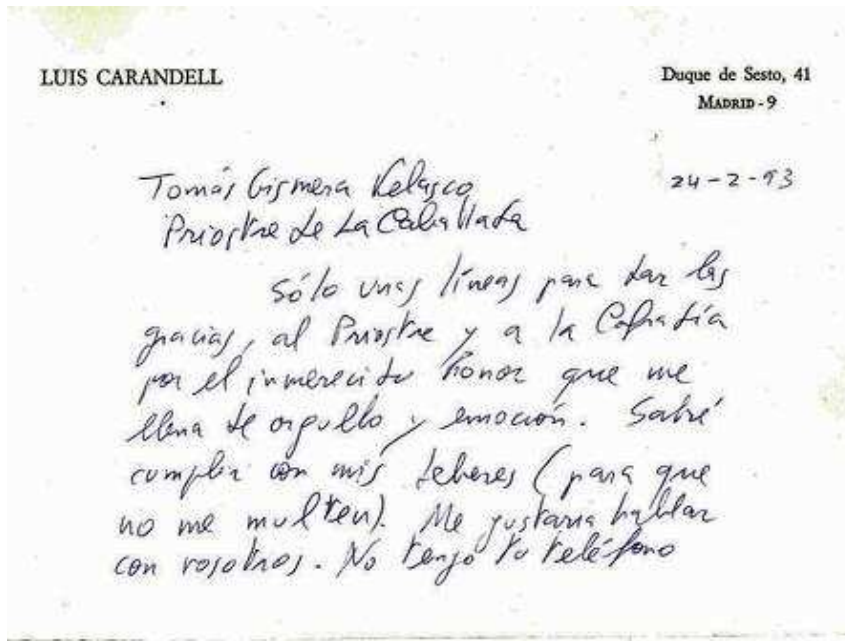 LUIS CARANDELL
Duque de Sesto, 41
MADRID - 9
24-2-93
Tomás Gismera Velasco
Priostre de La Caballada
Sólo unas líneas para dar las
gracias, al Priostre y a la Cofradía
por el inmerecido honor que me
llena de orgullo y emoción. Sabré
cumplir con mis deberes (para que
no me multen). Me gustaría hablar
con vosotros. No tengo tu teléfono